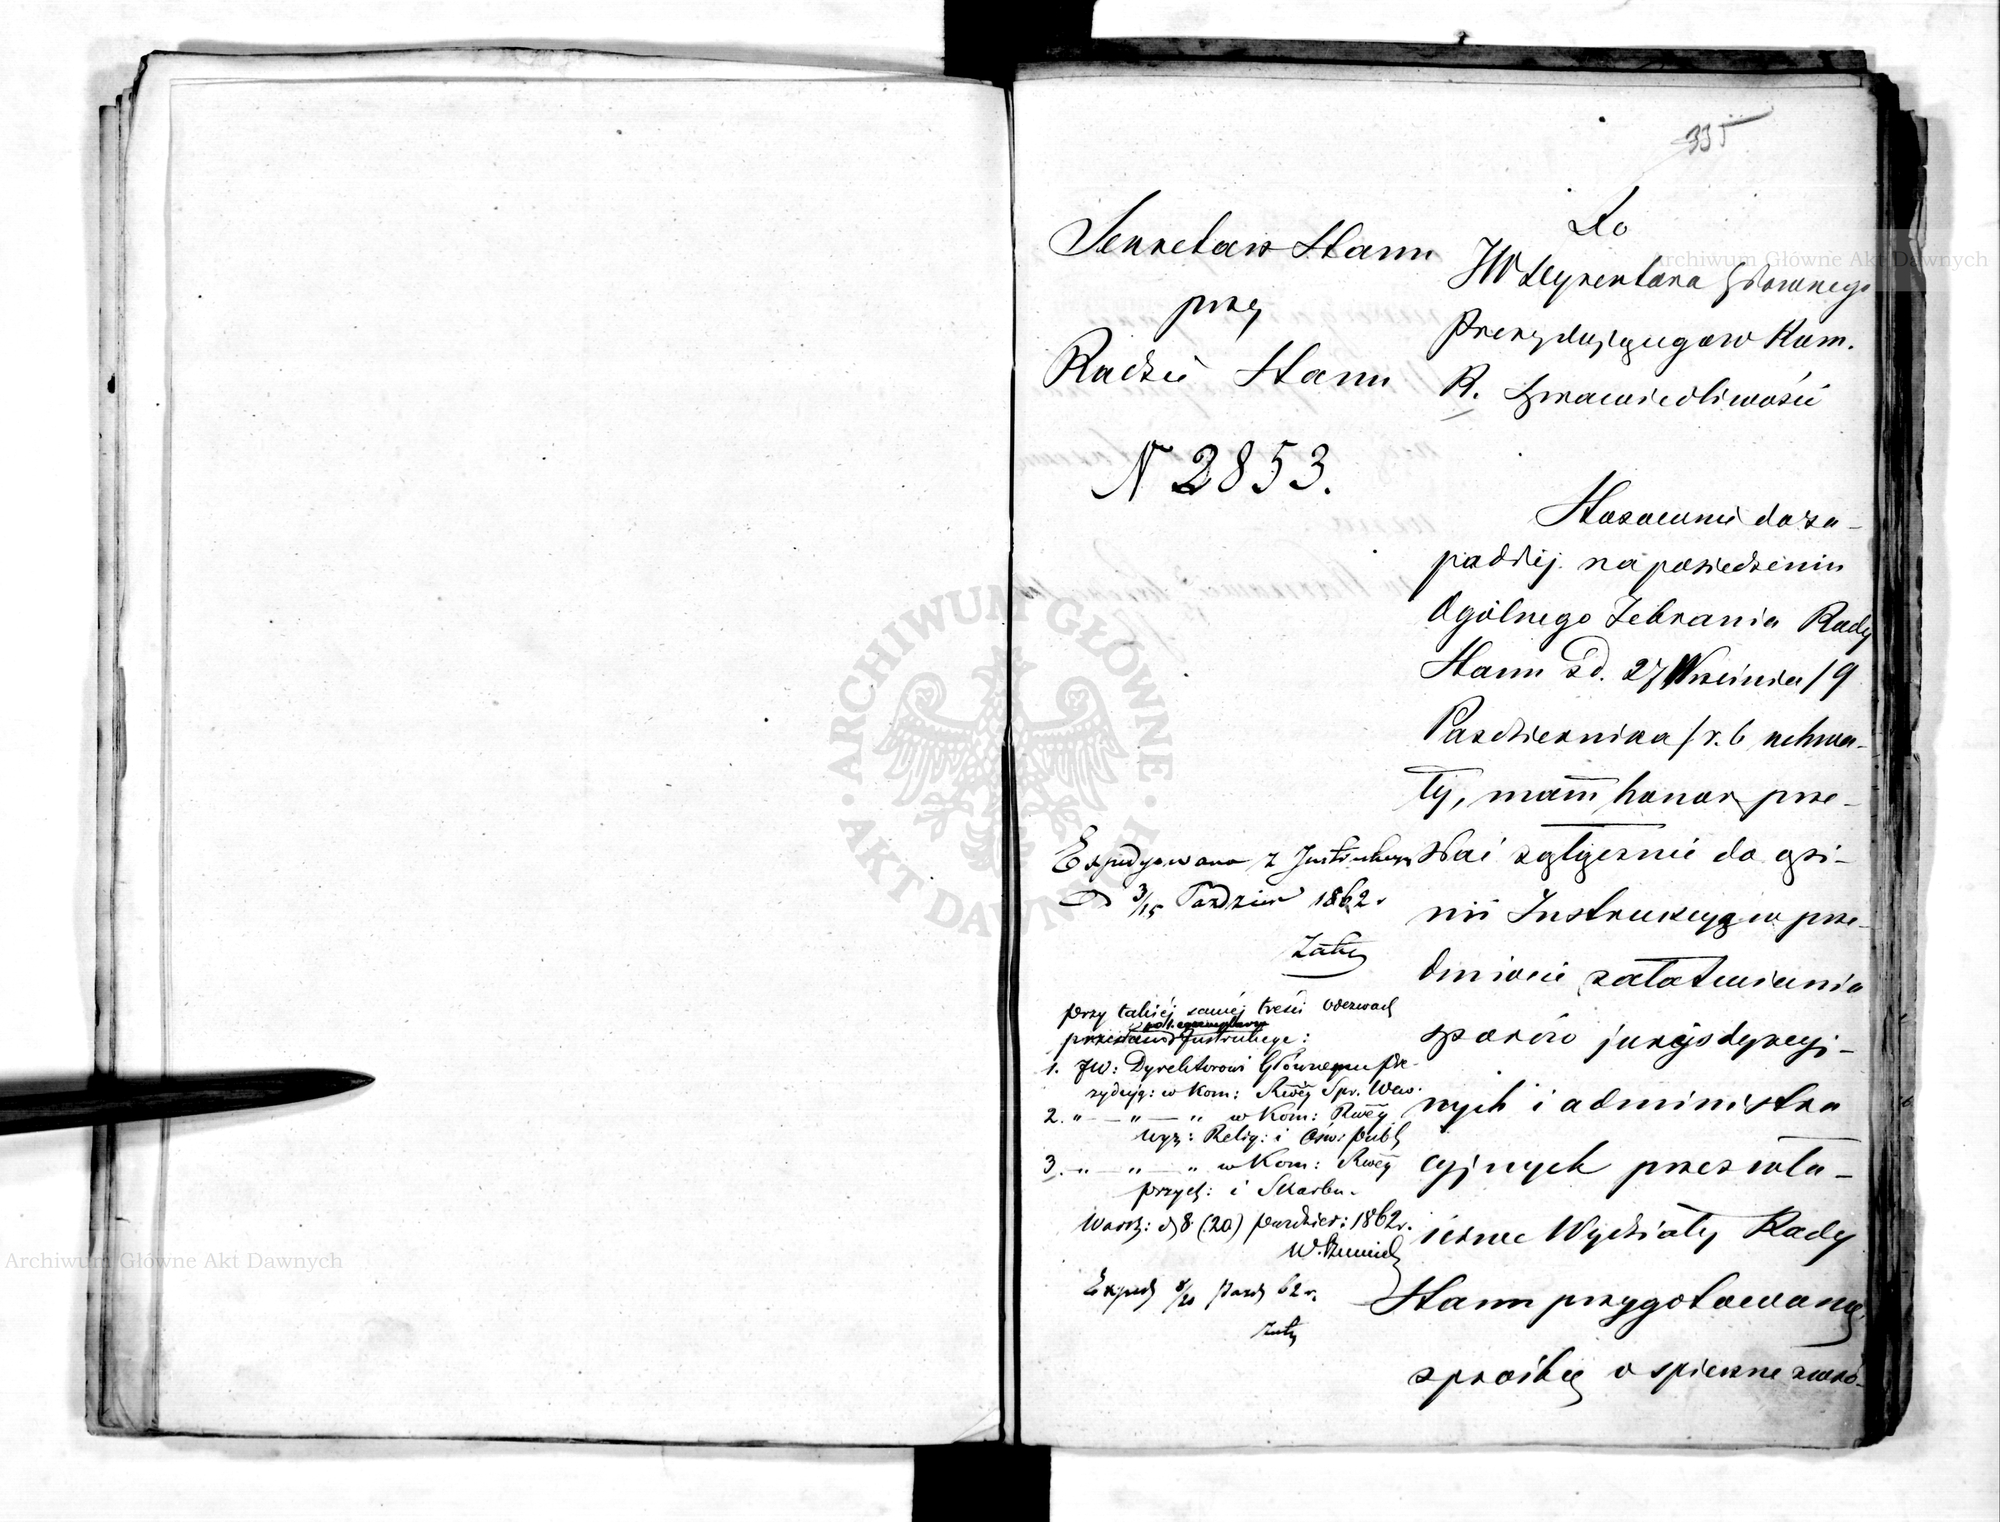 335
Sekretarz Stanu
przy
Radzie Stanu
N 2853.
Do
JW Dyrektora Głównego
Prezydującego w Kom.
R. Sprawiedliwości
Stosownie do za-
padłéj na posiedzeniu
Ogólnego Zebrania Rady
Stanu z d. 27 Września / 9
Października / r. b uchwa-
ły, mam honor prze-
słać załącznie do opi-
nii Instrukcyą w prze-
dmiocie załatwiania
sporów jurysdykcyj-
nych i administra
cyjnych przez wła-
ściwe Wydziały Rady
Stanu przygotowaną,
z prośbą o spieszne zwró-
Expedyowano z Instrukcyą
D 3/15 Paździer 1862 r
przy takiéj saméj treści odezwach
Instrukcye:
1. JW: Dyrektorowi Głównemu Pre-
zydują: w Kom: Rwéj Spr. Wew.
2. " — " — " w Kom: Rwéj
Wyz: Relig: i Ośw: Publ
3. " — " — " w Kom: Rwéj
Przych: i Skarbu.
Warsz: d 8 (20) Paździer: 1862 r.
Exped 8/20 Paźd 62 r.
ARCHIWUM GŁÓWNE AKT DAWNYCH
Archiwum Główne Akt Dawnych
Archiwum Główne Akt Dawnych